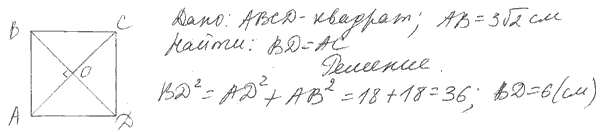 B C
O
A D
Дано: ABCD - квадрат; AB = 3√2 см
Найти: BD = AC
Решение.
BD² = AD² + AB² = 18 + 18 = 36; BD = 6 (см)